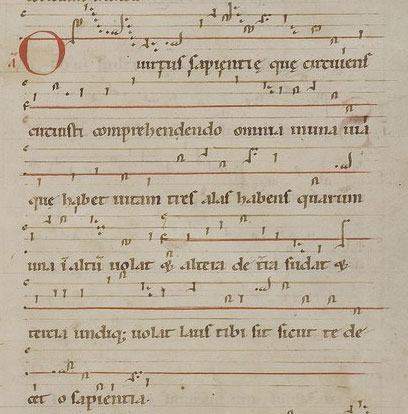 O uirtus sapientię que circuiens
circuisti comprehendendo omnia in una uia
que habet uitam tres alas habens quarum
una ī altū uolat & altera de t̄ra sudat &
tercia undiq; uolat laus tibi sit sicut te de
cet o sapientia.